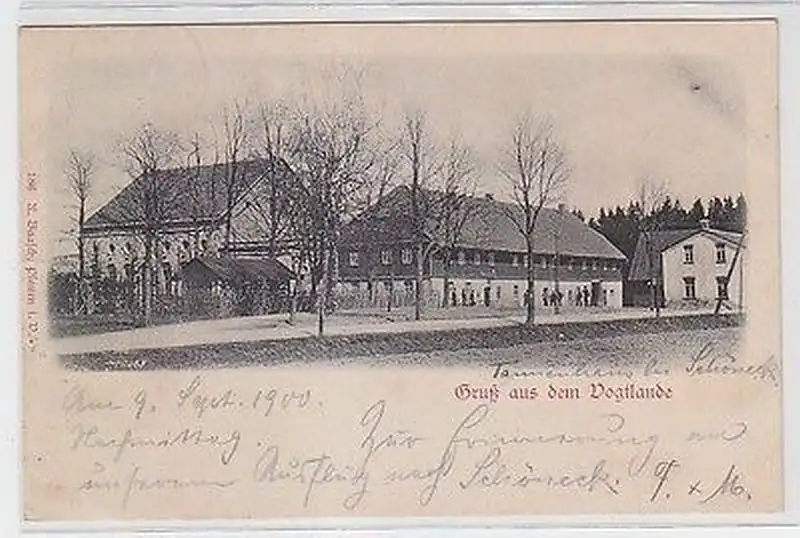 Tannenhaus bei Schöneck
Gruß aus dem Vogtlande
Am 9. Sept. 1900.
Nachmittag. Zur Erinnerung an
unseren Ausflug nach Schöneck.
186 Plauen i. V.